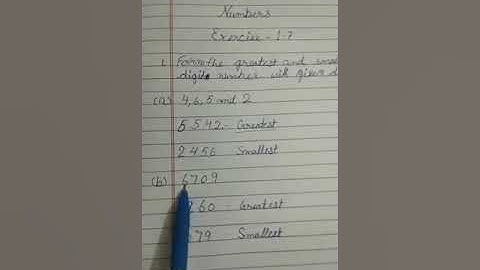 Numbers
Exercise - 1.7
1. Form the greatest and
digits number with given
(a) 4, 6, 5 and 2
6542 - Greatest
2456 Smallest
(b) 6709
760 - Greatest
79 Smallest